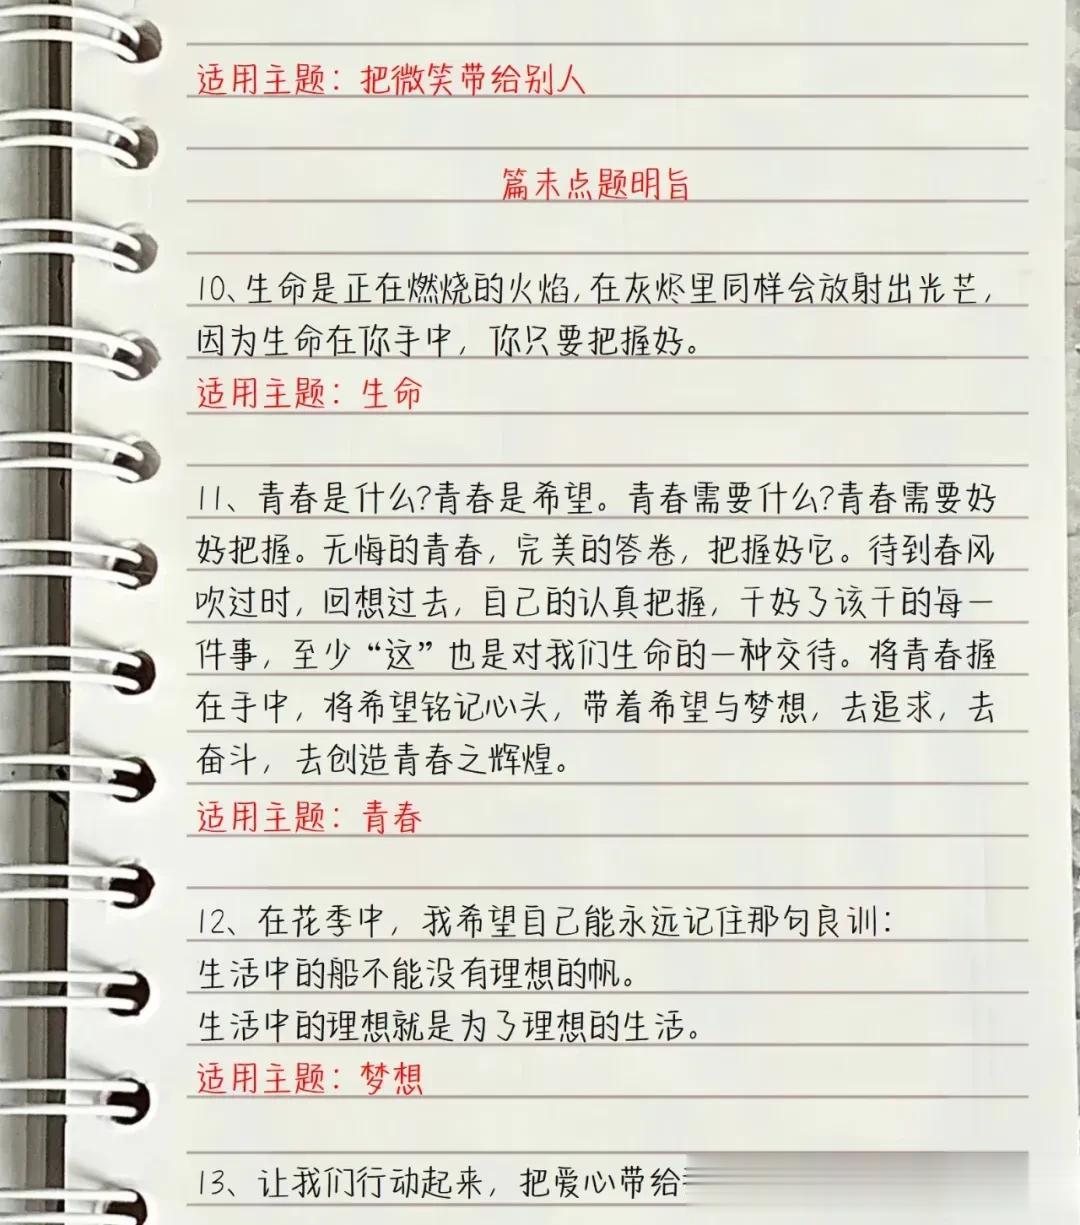 适用主题：把微笑带给别人
篇末点题明旨
10、生命是正在燃烧的火焰,在灰烬里同样会放射出光芒，
因为生命在你手中，你只要把握好。
适用主题：生命
11、青春是什么?青春是希望。青春需要什么?青春需要好
好把握。无悔的青春，完美的答卷，把握好它。待到春风
吹过时，回想过去，自己的认真把握，干好了该干的每一
件事，至少“这”也是对我们生命的一种交待。将青春握
在手中，将希望铭记心头，带着希望与梦想，去追求，去
奋斗，去创造青春之辉煌。
适用主题：青春
12、在花季中，我希望自己能永远记住那句良训：
生活中的船不能没有理想的帆。
生活中的理想就是为了理想的生活。
适用主题：梦想
13、让我们行动起来，把爱心带给